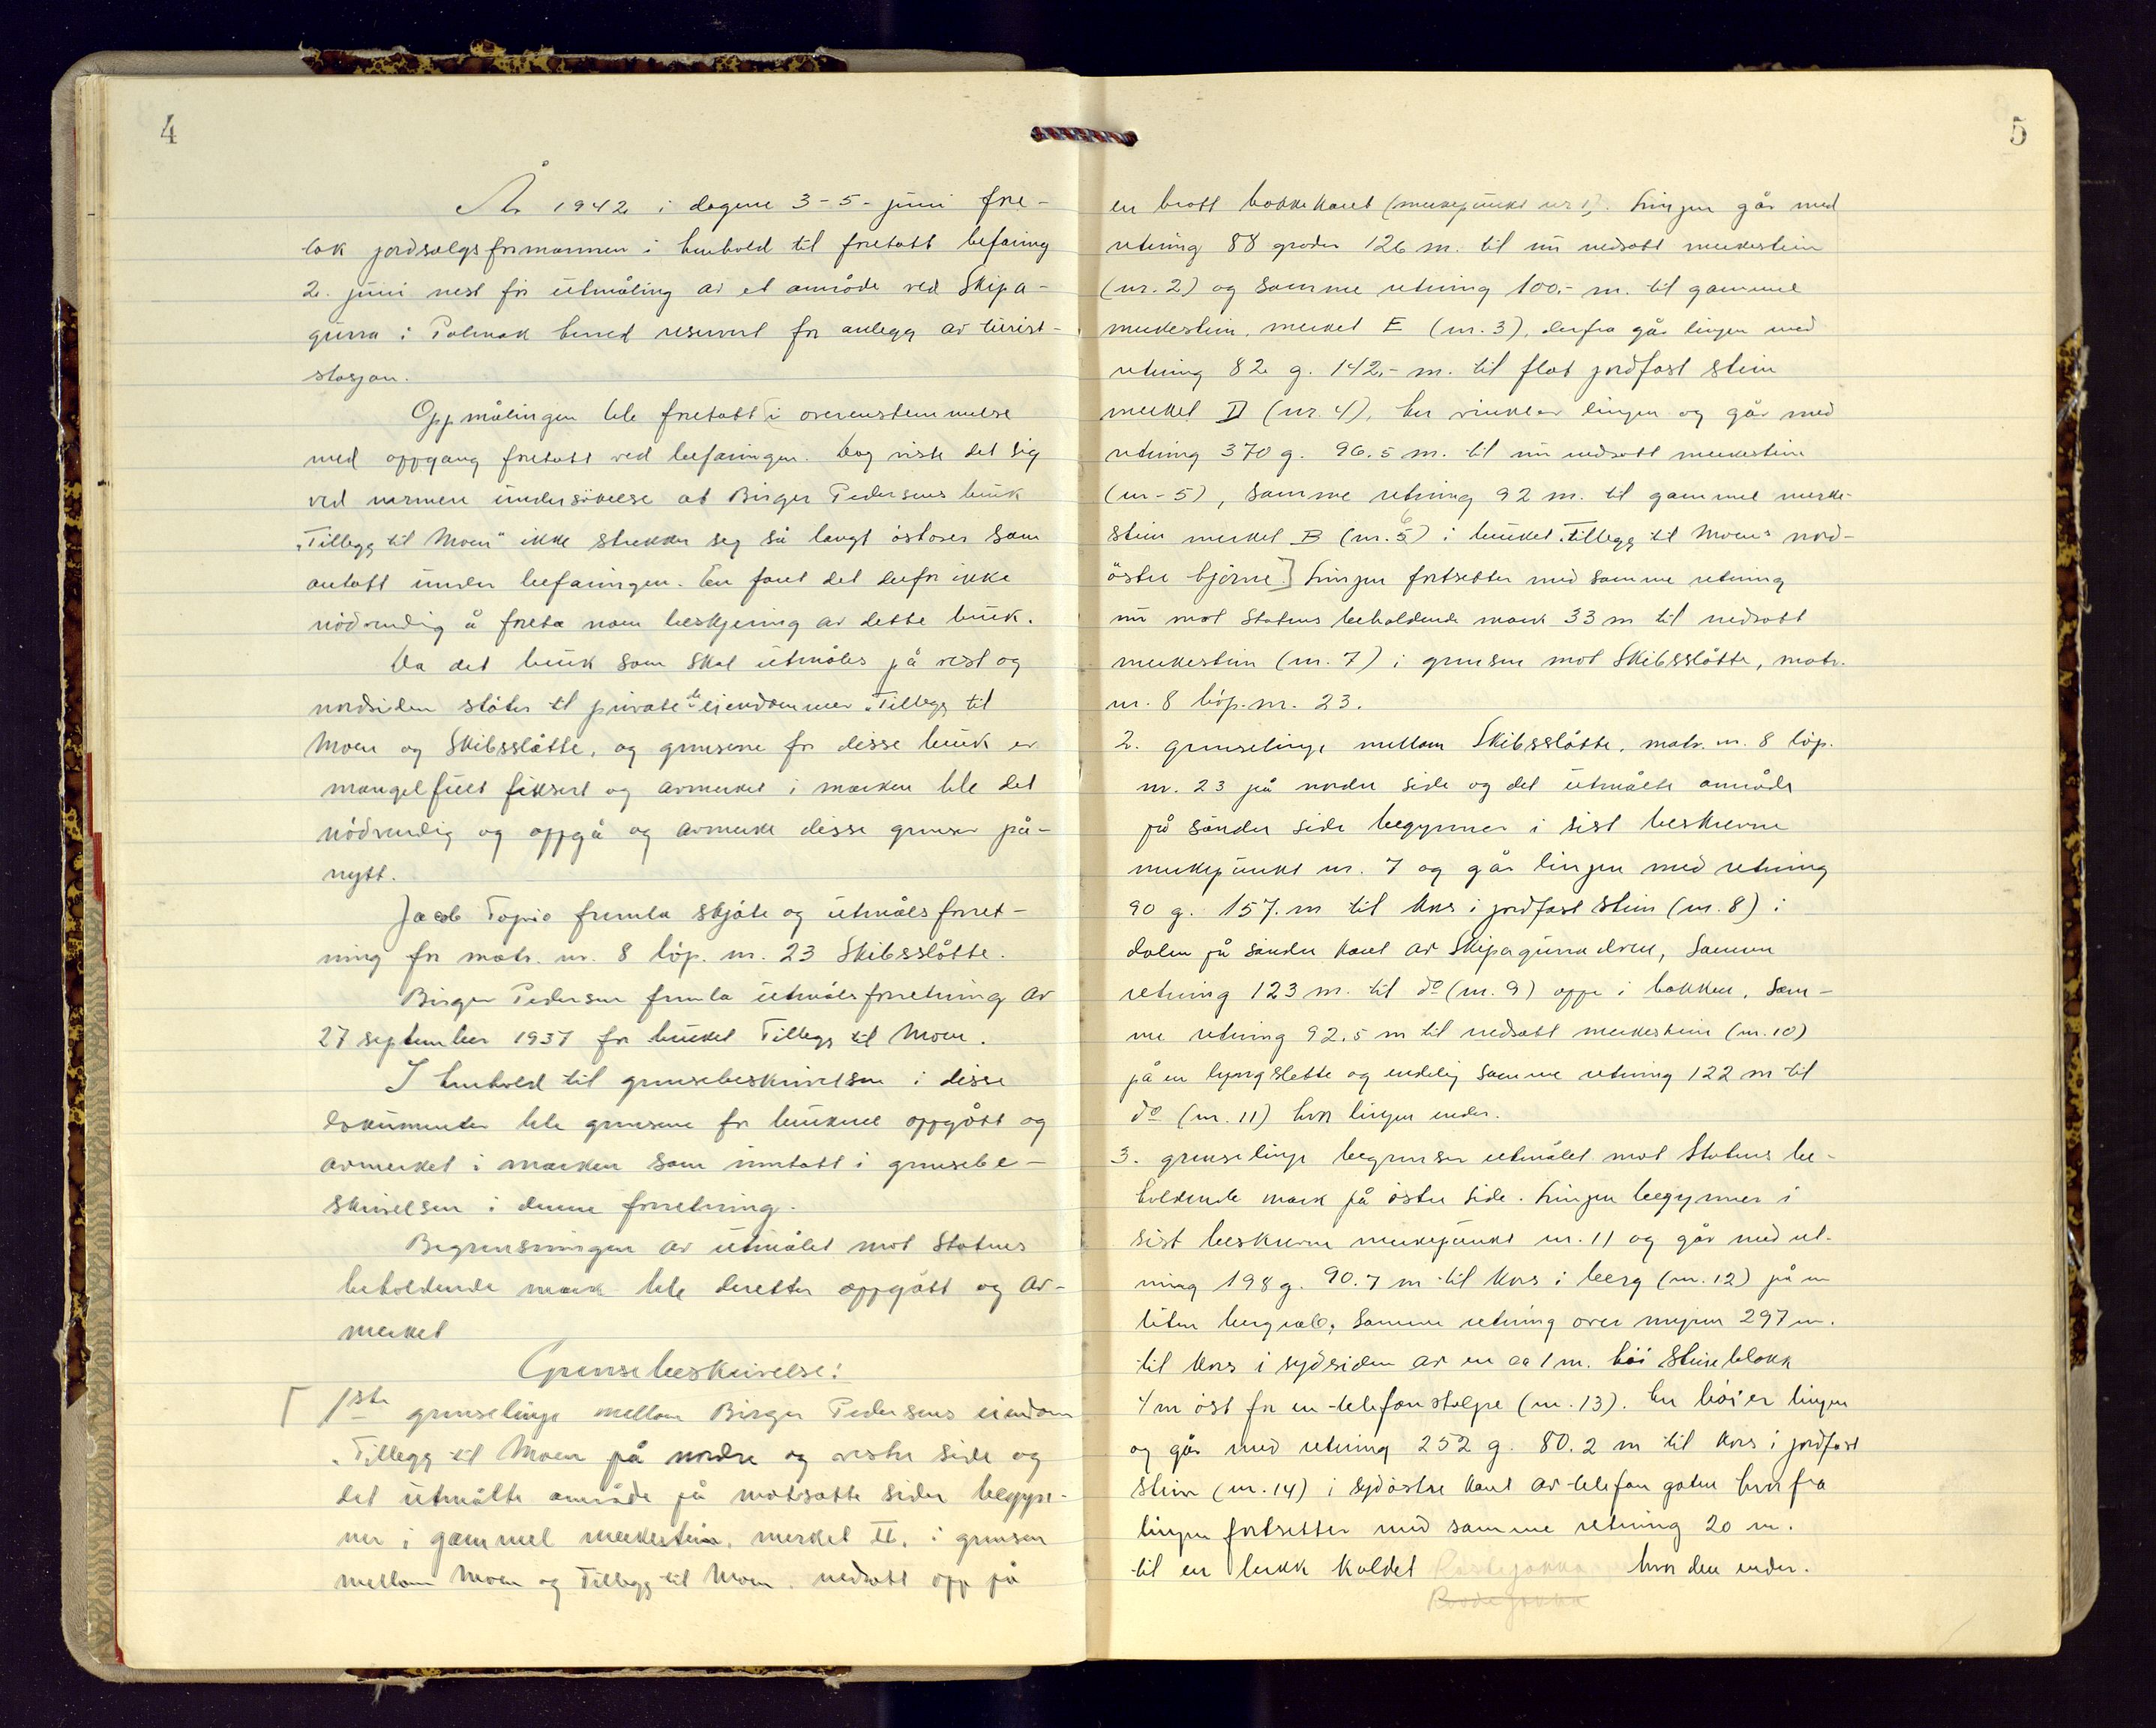 4
År 1942 i dagene 3-5- juni fore-
tok jordsalgsformannen i henhold til foretatt befaring
2. juni nest før utmåling av et område ved Skipa-
gurra i Polmak herred reservert for anlegg av turist-
stasjon.
Oppmålingen ble foretatt i overenstemmelse
med oppgang foretatt ved befaringen. Dog viste det sig
ved nærmere undersøkelse at Birger Pedersens bruk
"Tillegg til Moen" ikke strekker seg så langt østover som
antatt under befaringen. En fant det derfor ikke
nødvendig å foreta noen beskjering av dette bruk.
Da det bruk som skal utmåles på vest og
nordsiden støter til private eiendommer "Tillegg til
Moen og Skibsslåtte, og grensene for disse bruk er
mangelfult fiksert og avmerket i marken ble det
nödvendig og oppgå og avmerke disse grenser på-
nytt.
Jacob Topio fremla skjöte og utmålsforret-
ning for matr. nr. 8 löp. nr. 23 Skibsslåtte.
Birger Pedersen fremla utmålsforretning av
27 september 1937 for bruket Tillegg til Moen.
I henhold til grensebeskrivelsen i disse
dokumenter ble grensene for brukene oppgått og
avmerket i marken som inntatt i grensebe-
skrivelsen i denne forretning.
Begrensningen av utmålet mot Statens
beholdende mark ble deretter oppgått og av-
merket
Grensebeskrivelse:
1ste grenselinje mellom Birger Pedersens eiendom
"Tillegg til Moen på nordre og vestre side og
det utmålte område på motsatte sider begyn-
ner i gammel merkestein, merket II, i grensen
mellom Moen og Tillegg til Moen. nedsatt opp på
5
en bratt bakkekant (merkepunkt nr 1). Linjen går med
retning 88 grader 126 m. til ny nedsatt merkestein
(nr. 2) og samme retning 100.- m. til gammel
merkestein, merket E (nr. 3), derfra går linjen med
retning 82 g. 142.- m. til flat jordfast stein
merket D (nr. 4), her vinkler linjen og går med
retning 370 g. 96.5 m. til ny nedsatt merkestein
(nr - 5), samme retning 92 m. til gammel merke-
stein merket B (nr. 6) i bruket "Tillegg til Moens nord-
østre hjørne.] Linjen fortsetter med samme retning
nu mot Statens beholdende mark 33 m til nedsatt
merkestein (nr. 7) i grensen mot Skibsslåtte, matr.
nr. 8 löp. nr. 23.
2. grenselinje mellom Skibsslåtte, matr. nr. 8 löp.
nr. 23 på nordre side og det utmålte område
på söndre side begynner i sist beskrevne
merkepunkt nr. 7 og går linjen med retning
90 g. 157. m til kors i jordfast stein (nr. 8) i
dalen på söndre kant av Skipagurra elven, samme
retning 123 m. til do (nr. 9) oppe i bakken, sam-
me retning 92.5 m til nedsatt merkestein (nr. 10)
på en lyngslette og endelig samme retning 122 m til
do (nr. 11) hvor linjen ender.
3. grenselinje begrenser utmålet mot Statens be-
holdende mark på østre side. Linjen begynner i
sist beskrevne merkepunkt nr. 11 og går med ret-
ning 198 g. 90.7 m til kors i berg (nr. 12) på en
liten bergrabb, samme retning over myren 297 m.
til kors i sydsiden av en ca 1 m. höi steinblokk
4 m öst for en telefonstolpe (nr. 13). Her böier linjen
og går med retning 252 g. 80.2 m til kors i jordfast
stein (nr. 14) i sydöstre kant av telefon gaten hvorfra
linjen fortsetter med samme retning 20 m.
til en bekk kaldet hvor den ender.